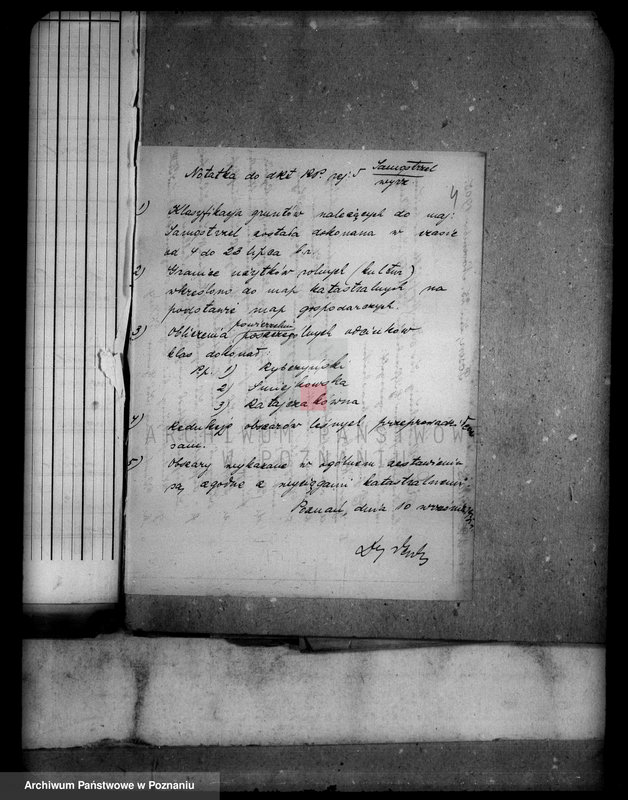 Notatka do akt RP. rej: 5 Samostrzel
wyrz
4
1) Klasyfikacja gruntów należących do maj:
Samostrzel została dokonana w czasie
od 4 do 23 lipca b.r.
2) Granice użytków rolnych (kultur)
wkreślono do map katastralnych na
podstawie map gospodarczych.
powierzchni
3) Obliczenia poszczególnych odcinków
klas dokonał:
Pp. 1) Rybczyński
2) Smiejkowska
3) Ratajczakówna
4) Redukcję obszarów leśnych przeprowadziłem
sam.
5) Obszary wykazane w ogólnem zestawieniu
są zgodne z wyciągami katastralnemi
Poznań, dnia 10 września
ARCHIWUM PAŃSTWOWE
W POZNANIU
Archiwum Państwowe w Poznaniu